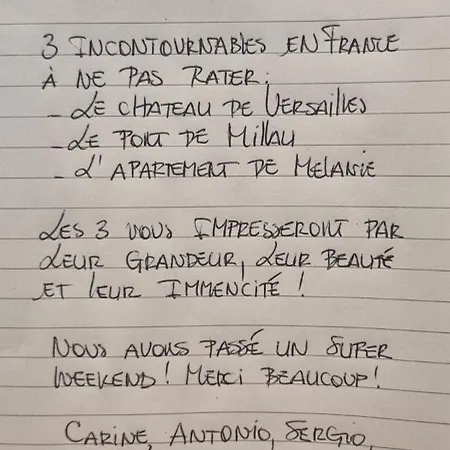 3 INCONTOURNABLES EN FRANCE
À NE PAS RATER:
- LE CHATEAU DE VERSAILLES
- LE PONT DE MILLAU
- L'APARTEMENT DE MELANIE
LES 3 VOUS IMPRESSERONT PAR
LEUR GRANDEUR, LEUR BEAUTÉ
ET LEUR IMMENCITÉ !
NOUS AVONS PASSÉ UN SUPER
WEEKEND! MERCI BEAUCOUP!
CARINE, ANTONIO, SERGIO,